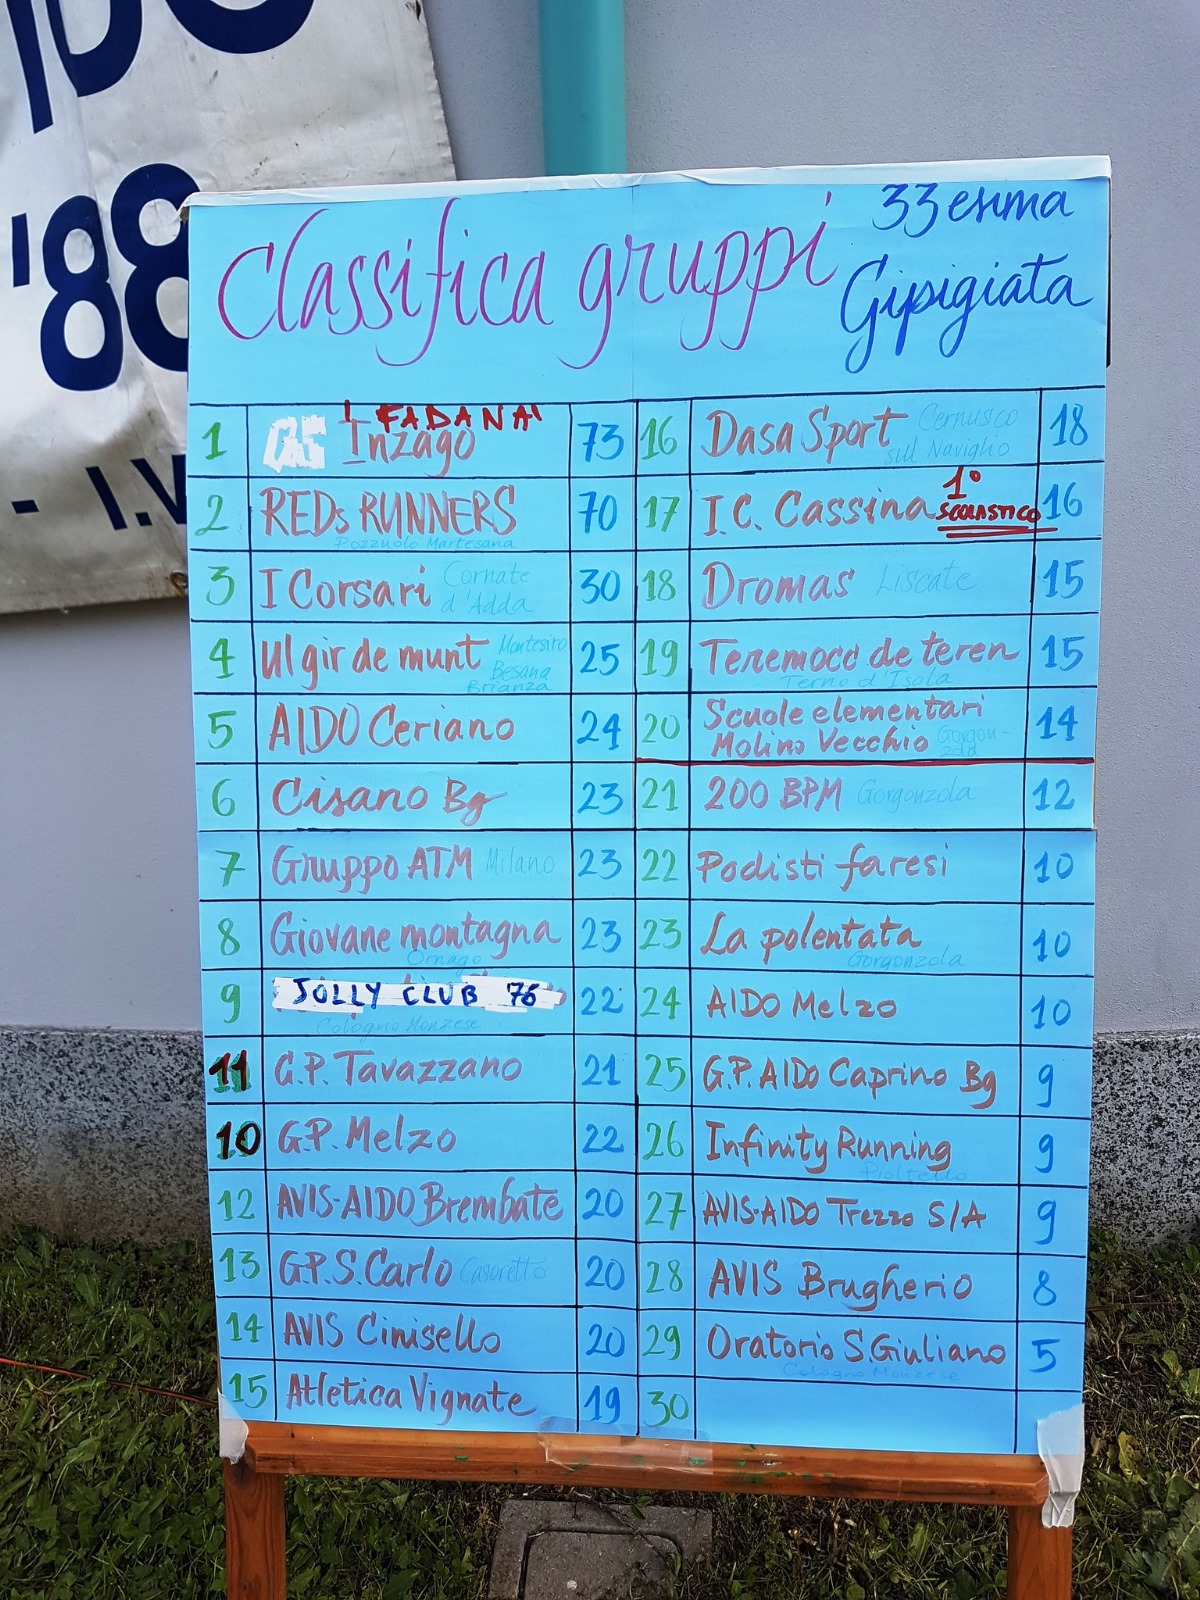 '88
- I.V
Classifica gruppi
33esima
Gipigiata
1 I FADANAI Inzago 73
2 REDs RUNNERS 70
Pozzuolo Martesana
3 I Corsari Cornate d'Adda 30
4 Ul gir de munt Montesiro Besana Brianza 25
5 AIDO Ceriano 24
6 Cisano Bg 23
7 Gruppo ATM Milano 23
8 Giovane montagna 23
Ornago
9 JOLLY CLUB 76 22
Cologno Monzese
11 G.P. Tavazzano 21
10 G.P. Melzo 22
12 AVIS-AIDO Brembate 20
13 G.P.S. Carlo Casoretto 20
14 AVIS Cinisello 20
15 Atletica Vignate 19
16 Dasa Sport Cernusco sul Naviglio 18
17 I.C. Cassina 1° SCOLASTICO 16
18 Dromas Liscate 15
19 Teremocc de teren 15
Terno d'Isola
20 Scuole elementari
Molino Vecchio Gorgonzola 14
21 200 BPM Gorgonzola 12
22 Podisti faresi 10
23 La polentata 10
Gorgonzola
24 AIDO Melzo 10
25 G.P. AIDO Caprino Bg 9
26 Infinity Running 9
Pioltello
27 AVIS-AIDO Trezzo S/A 9
28 AVIS Brugherio 8
29 Oratorio S.Giuliano 5
Cologno Monzese
30